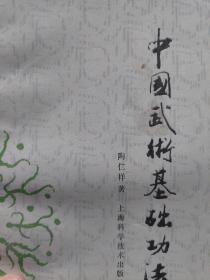 中國武術基础功法
陶仁祥著 上海科学技术出版